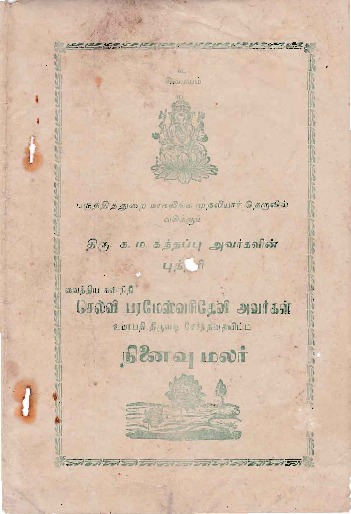 உ
சிவமயம்
பருத்தித்துறை மாகலிங்க முதலியார் தெருவில்
வசிக்கும்
திரு க. ம. கந்தப்பு அவர்களின்
புத்திரி
வைத்திய கலாநிதி
செல்வி பரமேஸ்வரிதேவி அவர்கள்
உமாபதி திருவடி சேர்ந்தமைவிட்ட
நினைவு மலர்